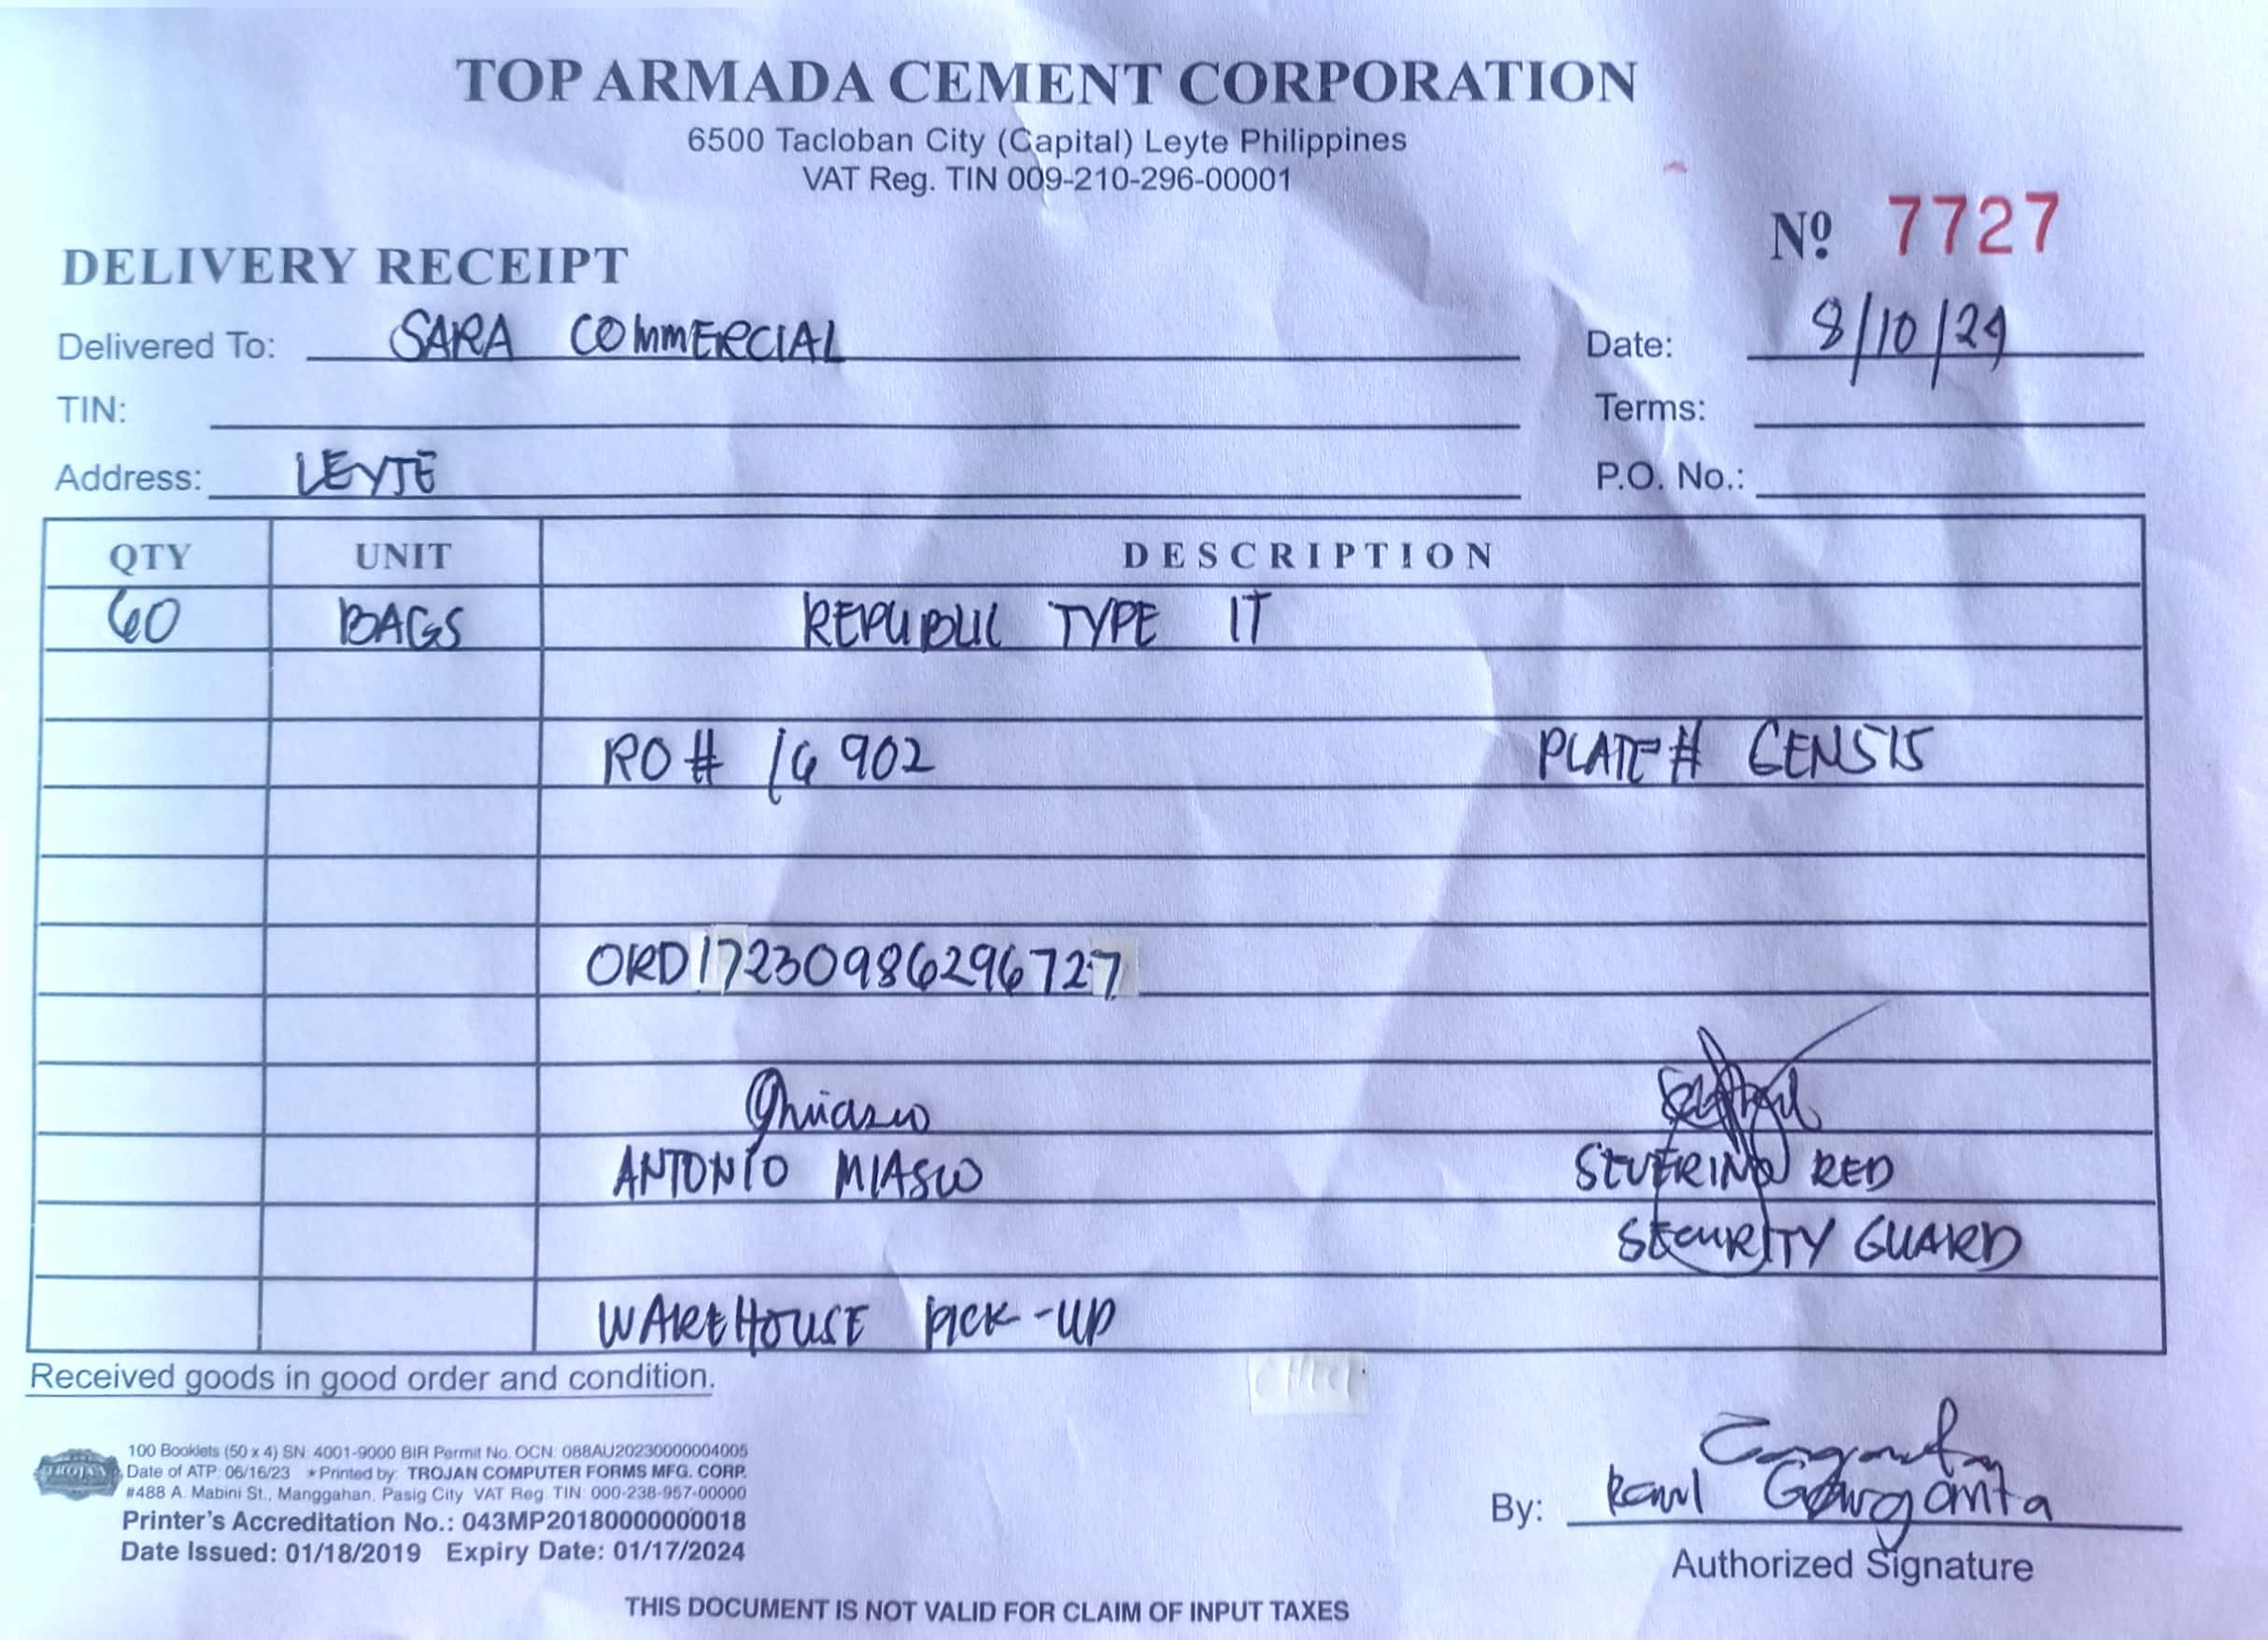 TOP ARMADA CEMENT CORPORATION
6500 Tacloban City (Capital) Leyte Philippines
VAT Reg. TIN 009-210-296-00001
Nº 7727
DELIVERY RECEIPT
Delivered To: SARA COMMERCIAL Date: 8/10/24
TIN: Terms:
Address: LEYTE P.O. No.:
QTY UNIT DESCRIPTION
60 BAGS REPUBLIC TYPE 1T
RO # 16902 PLATE # GEN515
ORD17230986296727
ANTONIO MIASCO SEVERINO RED
SECURITY GUARD
WAREHOUSE PICK-UP
Received goods in good order and condition.
100 Booklets (50 x 4) SN: 4001-9000 BIR Permit No. OCN: 088AU20230000004005
Date of ATP: 06/16/23 *Printed by: TROJAN COMPUTER FORMS MFG. CORP.
#488 A. Mabini St., Manggahan, Pasig City VAT Reg. TIN: 000-238-957-00000
Printer's Accreditation No.: 043MP20180000000018
Date Issued: 01/18/2019 Expiry Date: 01/17/2024
By: Raul Garganta
Authorized Signature
THIS DOCUMENT IS NOT VALID FOR CLAIM OF INPUT TAXES